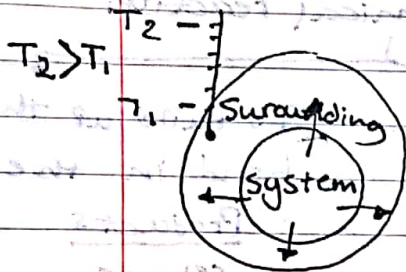 T₂
T₂>T₁
T₁
Surounding
system